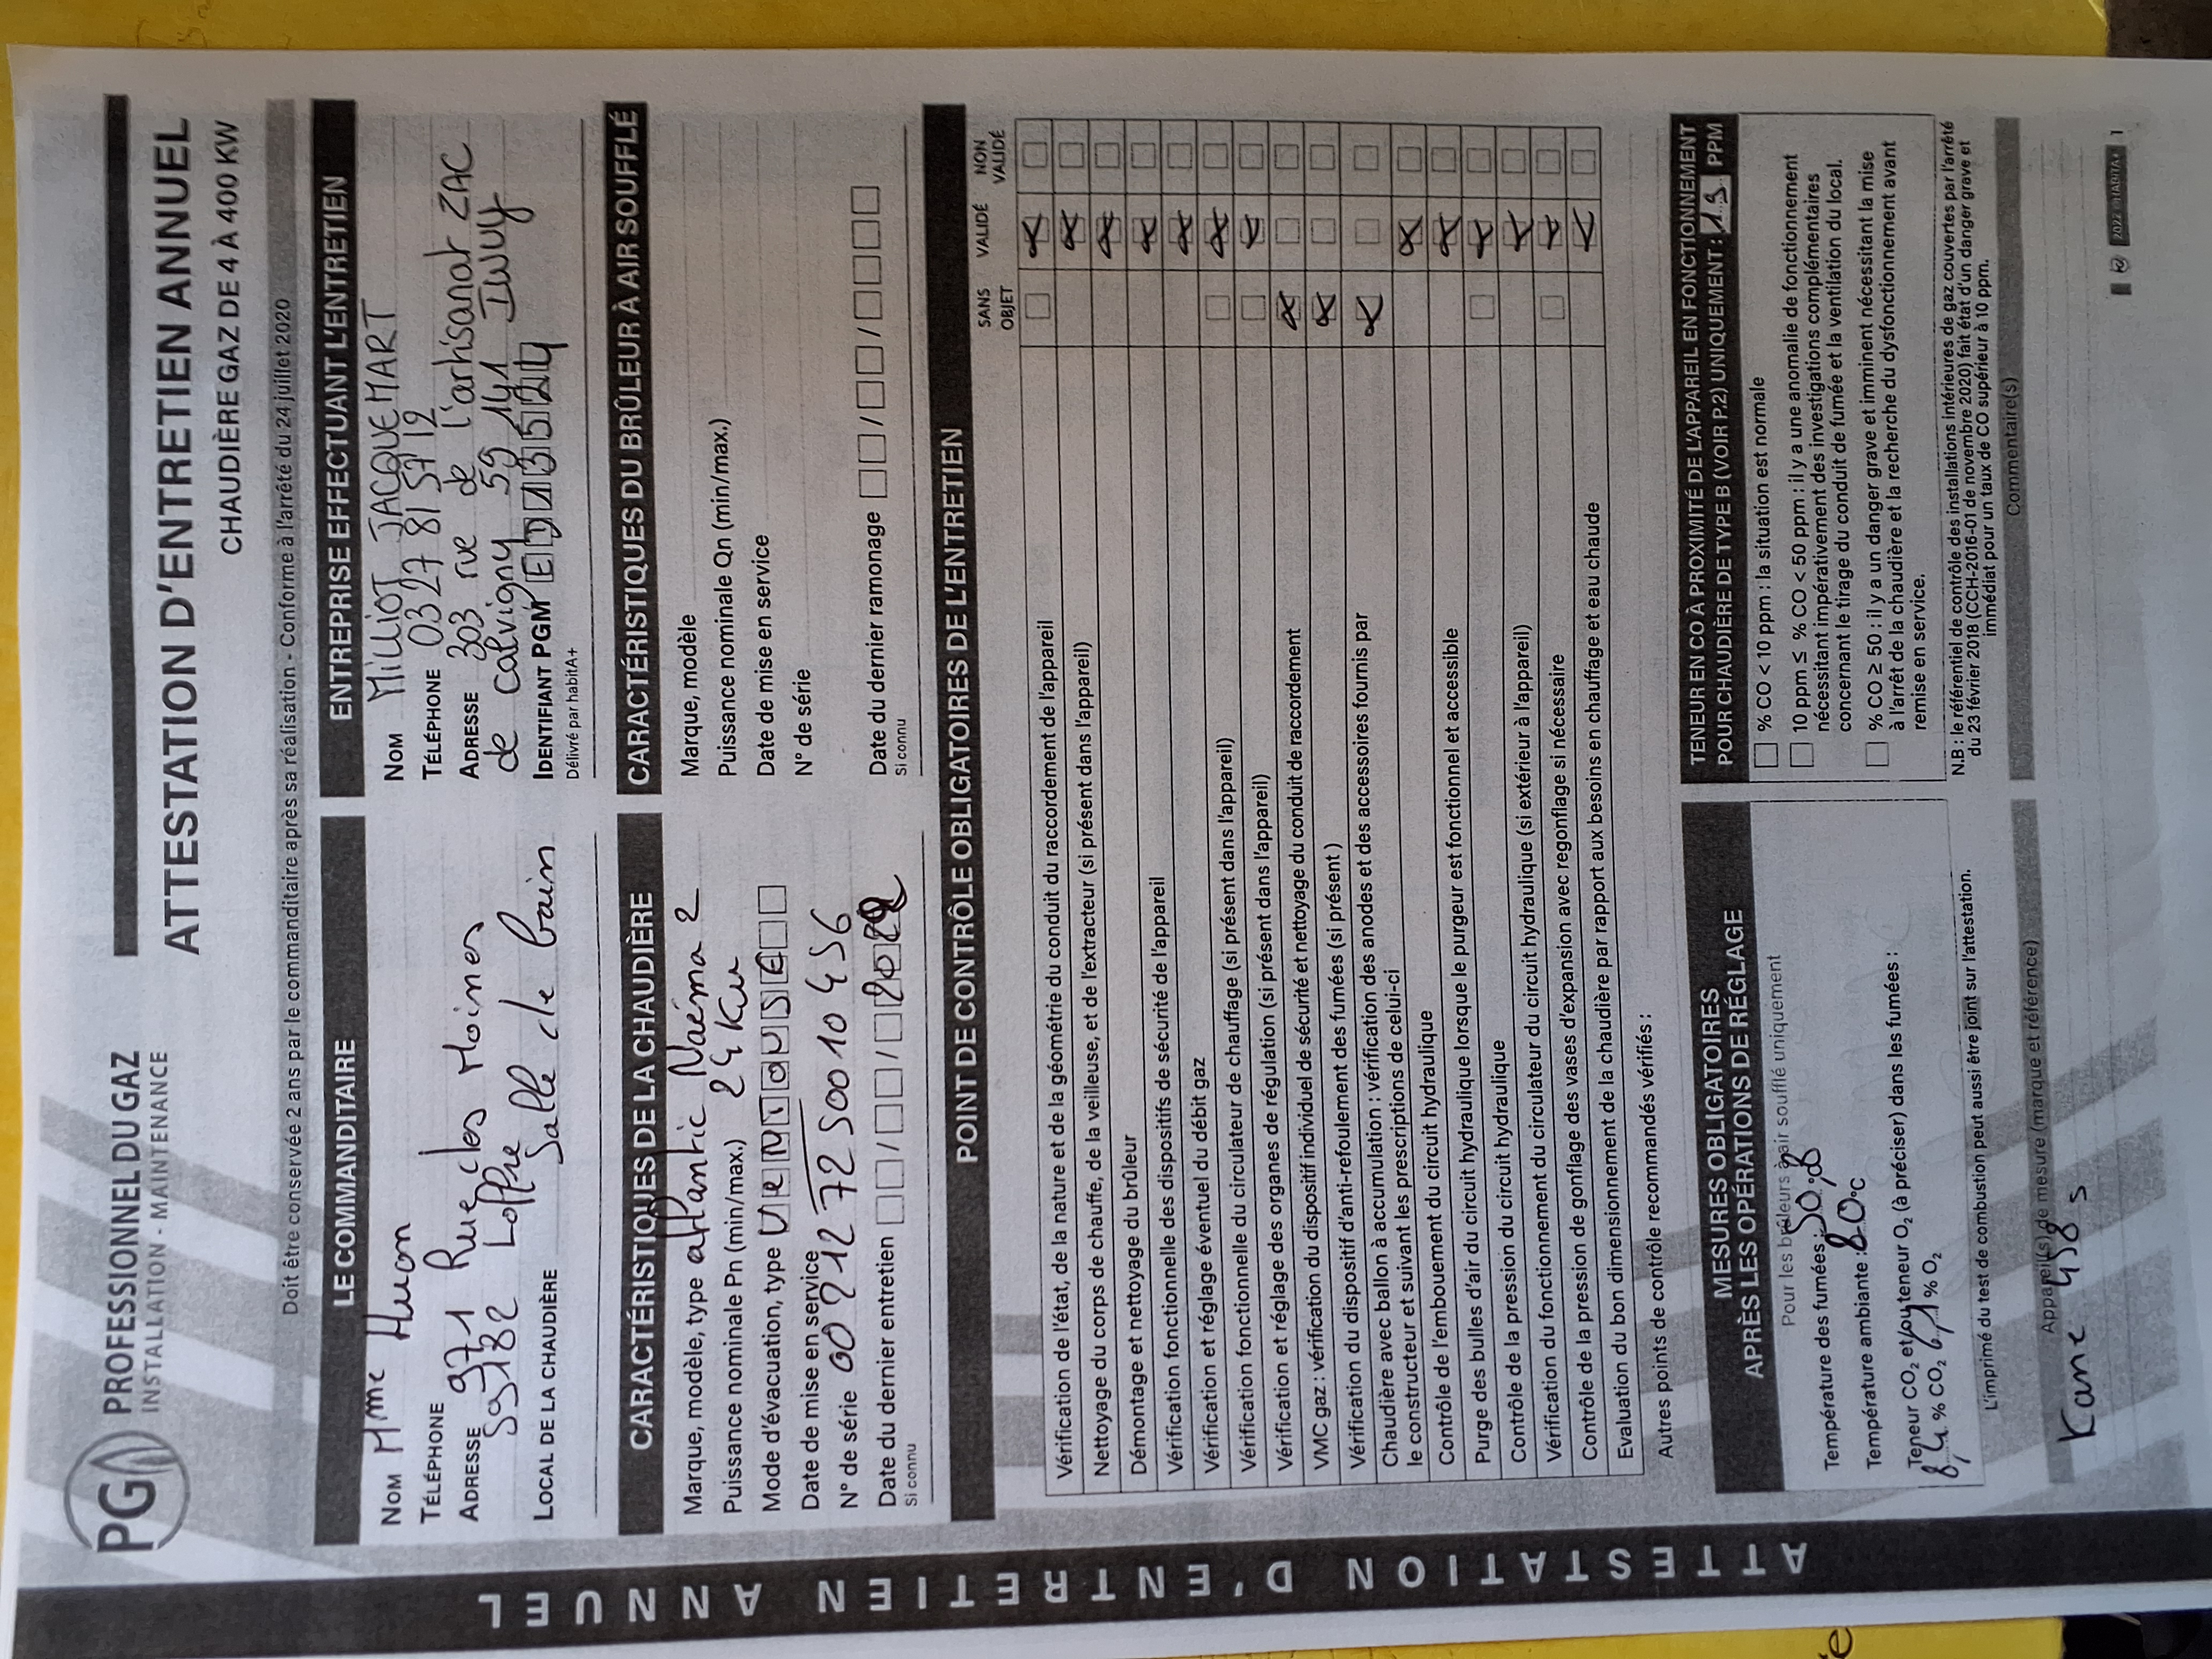 PG PROFESSIONNEL DU GAZ
INSTALLATION - MAINTENANCE
ATTESTATION D'ENTRETIEN ANNUEL
CHAUDIÈRE GAZ DE 4 À 400 KW
Doit être conservée 2 ans par le commanditaire après sa réalisation - Conforme à l'arrêté du 24 juillet 2020
LE COMMANDITAIRE
NOM Mme Huon
TÉLÉPHONE
ADRESSE 971 Rue des Moines
59182 Loffre
LOCAL DE LA CHAUDIÈRE Salle de bain
ENTREPRISE EFFECTUANT L'ENTRETIEN
NOM MILLIOT JACQUEMART
TÉLÉPHONE 03 27 81 57 12
ADRESSE 303 rue de l'artisanat ZAC
de calvigny 59 141 Iwuy
IDENTIFIANT PGM
Délivré par habitA+
CARACTÉRISTIQUES DE LA CHAUDIÈRE
Marque, modèle, type atlantic Naéma 2
Puissance nominale Pn (min/max.) 24 Kw
Mode d'évacuation, type VENTOUSE
Date de mise en service
N° de série 00 212 72 5001 0456
Date du dernier entretien / / 2022
Si connu
CARACTÉRISTIQUES DU BRÛLEUR À AIR SOUFFLÉ
Marque, modèle
Puissance nominale Qn (min/max.)
Date de mise en service
N° de série
Date du dernier ramonage / /
Si connu
POINT DE CONTRÔLE OBLIGATOIRES DE L'ENTRETIEN
SANS OBJET VALIDÉ NON VALIDÉ
Vérification de l'état, de la nature et de la géométrie du conduit du raccordement de l'appareil
Nettoyage du corps de chauffe, de la veilleuse, et de l'extracteur (si présent dans l'appareil)
Démontage et nettoyage du brûleur
Vérification fonctionnelle des dispositifs de sécurité de l'appareil
Vérification et réglage éventuel du débit gaz
Vérification fonctionnelle du circulateur de chauffage (si présent dans l'appareil)
Vérification et réglage des organes de régulation (si présent dans l'appareil)
VMC gaz : vérification du dispositif individuel de sécurité et nettoyage du conduit de raccordement
Vérification du dispositif d'anti-refoulement des fumées (si présent)
Chaudière avec ballon à accumulation : vérification des anodes et des accessoires fournis par
le constructeur et suivant les prescriptions de celui-ci
Contrôle de l'embouement du circuit hydraulique
Purge des bulles d'air du circuit hydraulique lorsque le purgeur est fonctionnel et accessible
Contrôle de la pression du circuit hydraulique
Vérification du fonctionnement du circulateur du circuit hydraulique (si extérieur à l'appareil)
Contrôle de la pression de gonflage des vases d'expansion avec regonflage si nécessaire
Evaluation du bon dimensionnement de la chaudière par rapport aux besoins en chauffage et eau chaude
Autres points de contrôle recommandés vérifiés :
MESURES OBLIGATOIRES
APRÈS LES OPÉRATIONS DE RÉGLAGE
Pour les brûleurs à air soufflé uniquement
Température des fumées :
Température ambiante : 20 °C
Teneur CO₂ et/ou teneur O₂ (à préciser) dans les fumées :
8,4 % CO₂ 6,1 % O₂
L'imprimé du test de combustion peut aussi être joint sur l'attestation.
TENEUR EN CO À PROXIMITÉ DE L'APPAREIL EN FONCTIONNEMENT
POUR CHAUDIÈRE DE TYPE B (VOIR P.2) UNIQUEMENT : PPM
% CO < 10 ppm : la situation est normale
10 ppm ≤ % CO < 50 ppm : il y a une anomalie de fonctionnement
nécessitant impérativement des investigations complémentaires
concernant le tirage du conduit de fumée et la ventilation du local.
% CO ≥ 50 : il y a un danger grave et imminent nécessitant la mise
à l'arrêt de la chaudière et la recherche du dysfonctionnement avant
remise en service.
N.B : le référentiel de contrôle des installations intérieures de gaz couvertes par l'arrêté
du 23 février 2018 (CCH-2016-01 de novembre 2020) fait état d'un danger grave et
immédiat pour un taux de CO supérieur à 10 ppm.
Appareil(s) de mesure (marque et référence)
Kane 458 s
Commentaire(s)
2022 HABITA+ 1
ATTESTATION D'ENTRETIEN ANNUEL